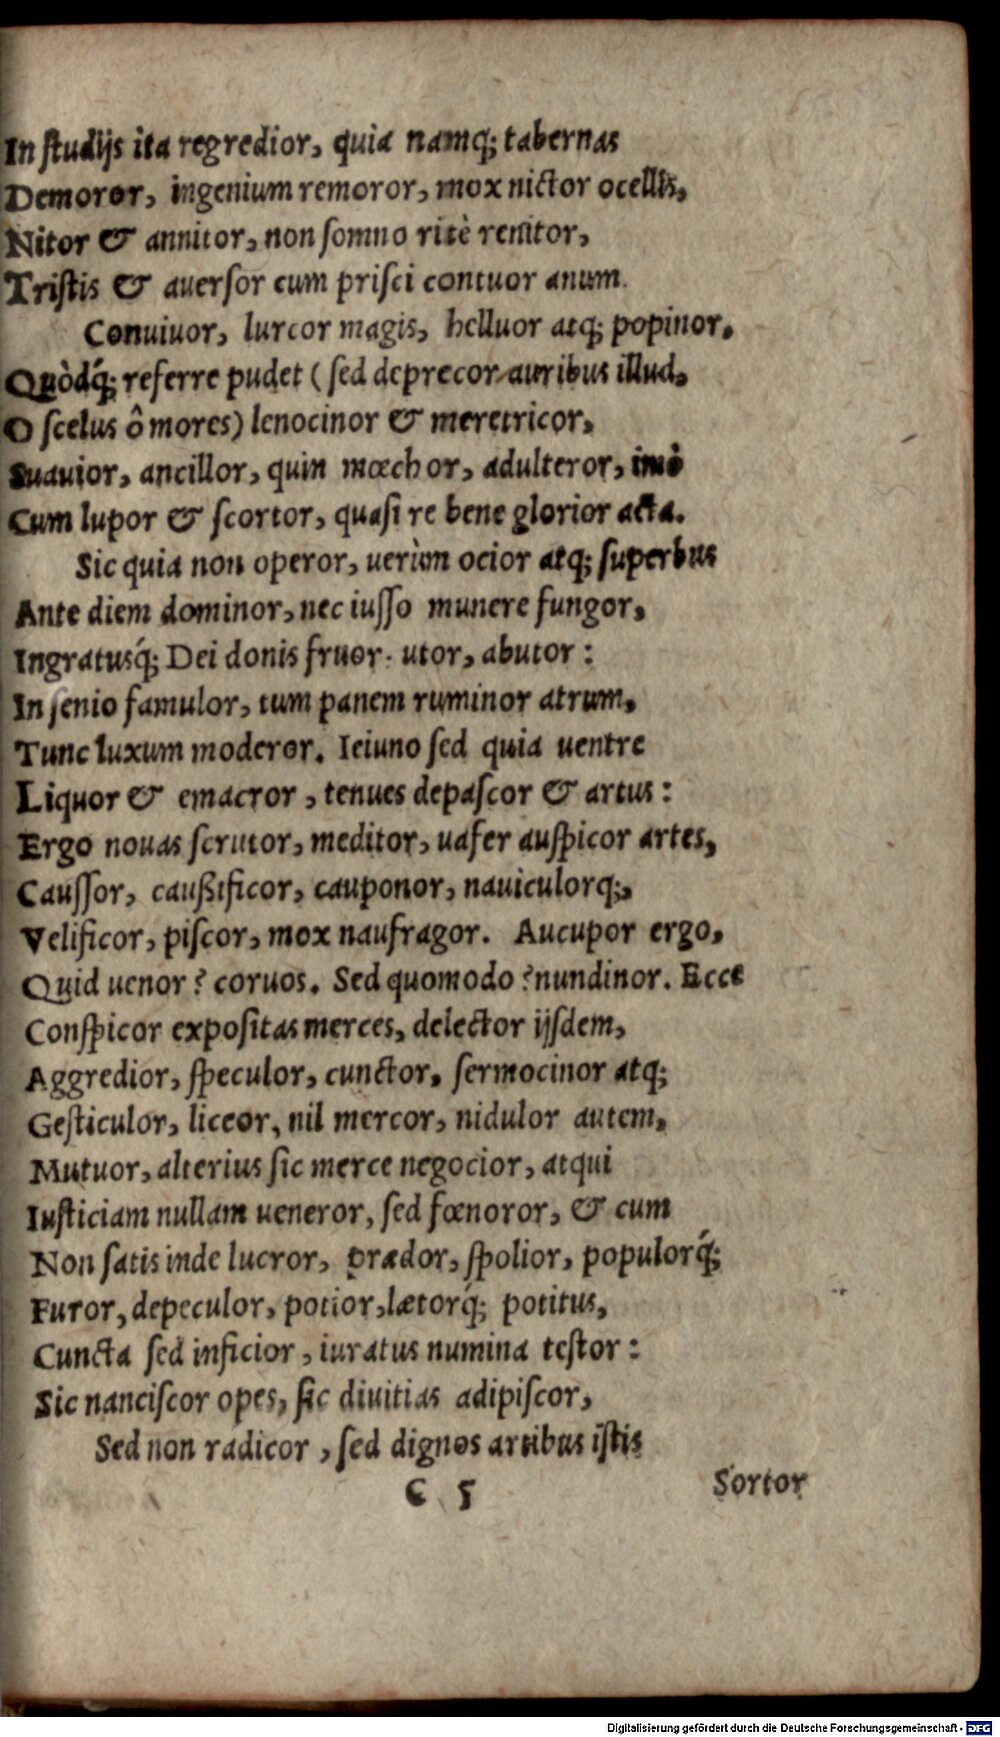 In ſtudijs ita regredior, quia namq́; tabernas
Demoror, ingenium remoror, mox nictor ocellis,
Nitor & annitor, non ſomno ritè renitor,
Triſtis & auerſor cum priſci contuor anum.
Conuiuor, lurcor magis, helluor atq; popinor,
Quòdq́; referre pudet (ſed deprecor auribus illud,
O ſcelus ô mores) lenocinor & meretricor,
Suauior, ancillor, quin mœchor, adulteror, imò
Cum lupor & ſcortor, quaſi re bene glorior acta.
Sic quia non operor, uerùm ocior atq; ſuperbus
Ante diem dominor, nec iuſſo munere fungor,
Ingratusq́; Dei donis fruor. utor, abutor:
In ſenio famulor, tum panem ruminor atrum,
Tunc luxum moderor. Ieiuno ſed quia uentre
Liquor & emacror, tenues depaſcor & artus:
Ergo nouas ſcrutor, meditor, uafer auſpicor artes,
Cauſſor, caußificor, cauponor, nauiculorq;,
Velificor, piſcor, mox naufragor. Aucupor ergo,
Quid uenor? coruos. Sed quomodo? nundinor. Ecce
Conſpicor expoſitas merces, delector ijſdem,
Aggredior, ſpeculor, cunctor, ſermocinor atq;
Geſticulor, liceor, nil mercor, nidulor autem,
Mutuor, alterius ſic merce negocior, atqui
Iuſticiam nullam ueneror, ſed fœnoror, & cum
Non ſatis inde lucror, prædor, ſpolior, populorq́;
Furor, depeculor, potior, lætorq́; potitus,
Cuncta ſed inficior, iuratus numina teſtor:
Sic nanciſcor opes, ſic diuitias adipiſcor,
Sed non radicor, ſed dignos artibus iſtis
C 5
Sortor
Digitalisierung gefördert durch die Deutsche Forschungsgemeinschaft - DFG